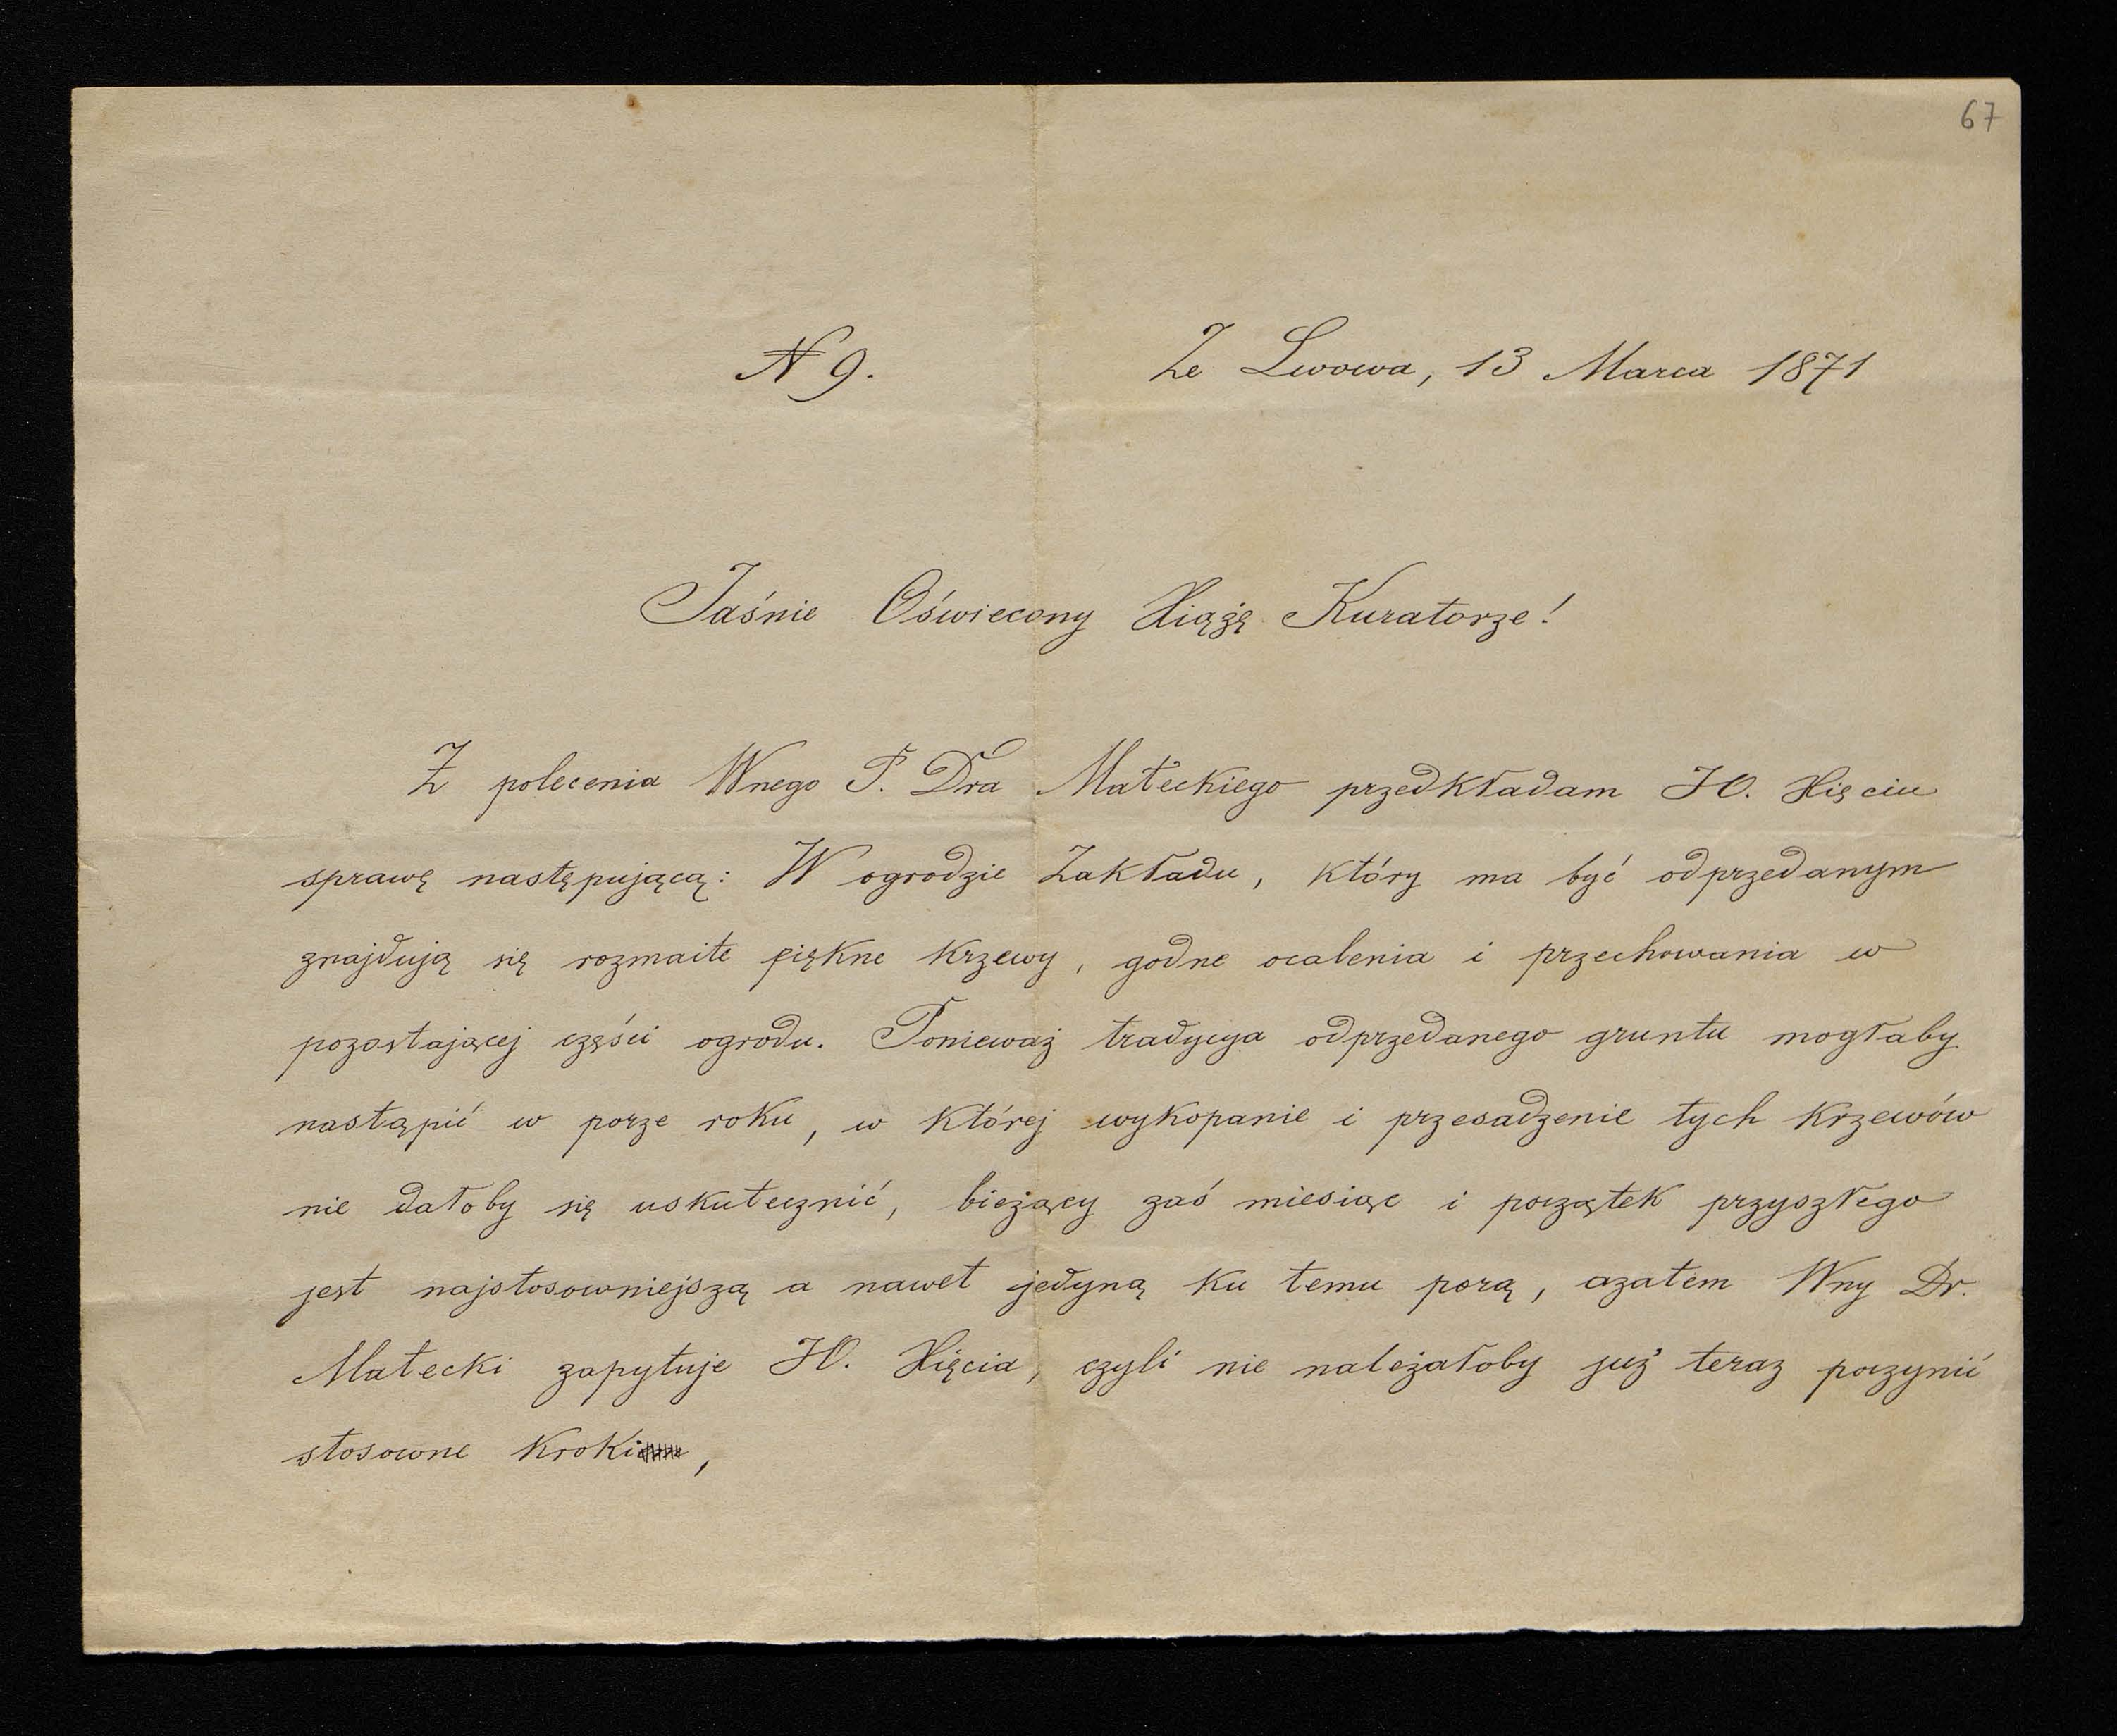 67
N 9.
Ze Lwowa, 13 Marca 1871
Jaśnie Oświecony Xiążę Kuratorze!
Z polecenia Wnego P. Dra Małeckiego przedkładam JO. Xięciu
sprawę następującą: W ogrodzie Zakładu, który ma być odprzedanym
znajdują się rozmaite piękne krzewy, godne ocalenia i przechowania w
pozostającej części ogrodu. Ponieważ tradycya odprzedanego gruntu mogłaby
nastąpić w porze roku, w której wykopanie i przesadzenie tych krzewów
nie dałoby się uskutecznić, bieżący zaś miesiąc i początek przyszłego
jest najstosowniejszą a nawet jedyną ku temu porą, azatem Wny Dr.
Małecki zapytuje JO. Xięcia, czyli nie należałoby już teraz poczynić
stosowne kroki,